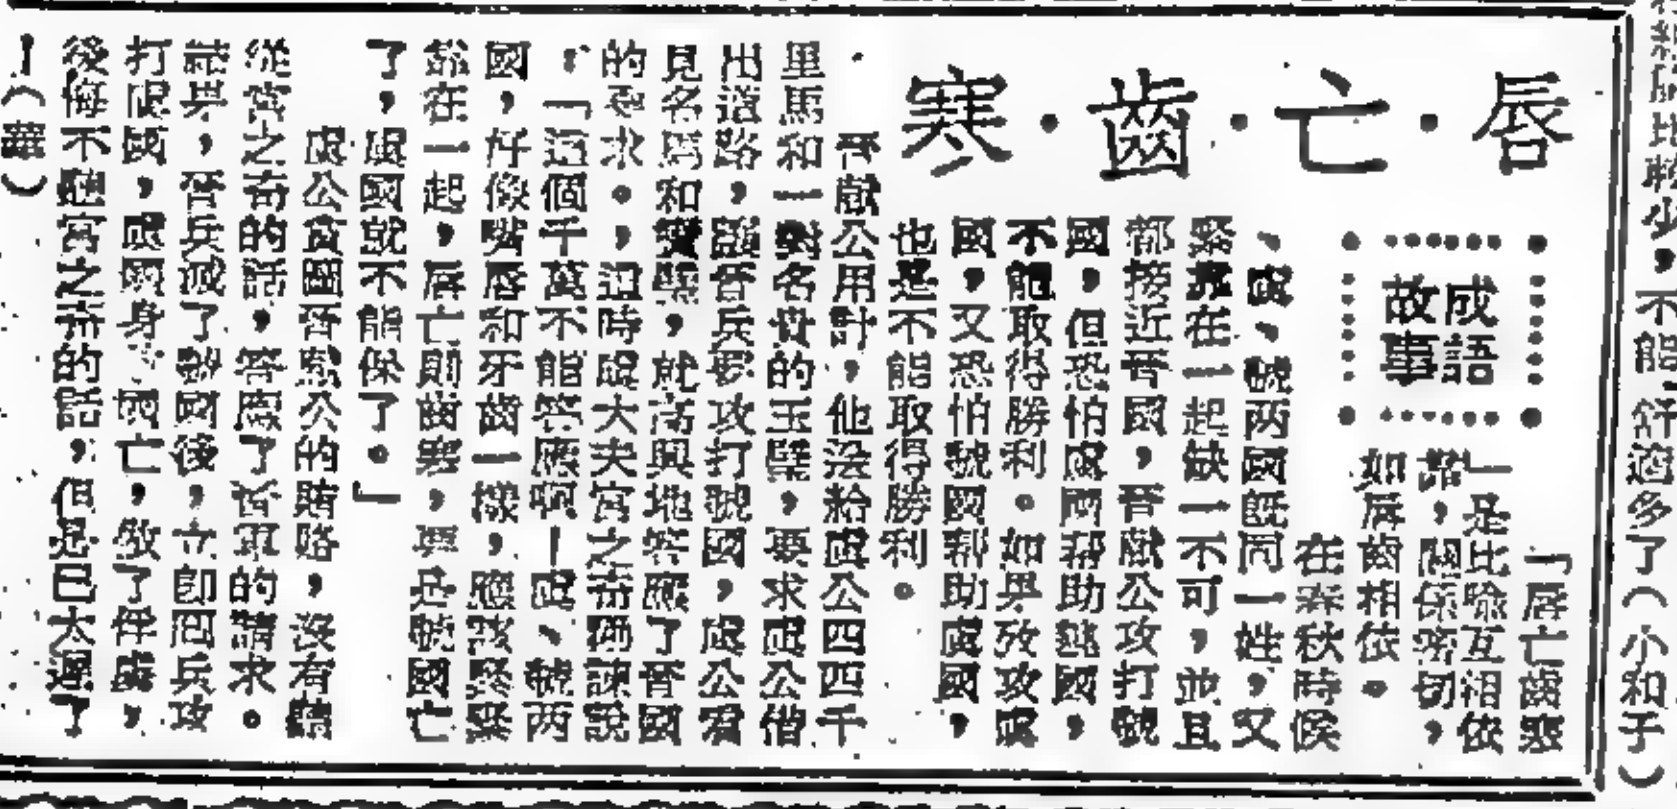 唇·亡·齒·寒
成語
故事
「唇亡齒寒
」是比喻互相依
靠，關係密切，
如唇齒相依。
在春秋時候
、虞、虢两國既同一姓，又
緊靠在一起缺一不可，並且
都接近晉國，晉獻公攻打虢
國，但恐怕虞國帮助虢國，
不能取得勝利。如果攻攻虞
國，又恐怕虢國帮助虞國，
也是不能取得勝利。
晉獻公用計，他送給虞公四四千
里馬和一對名貴的玉璧，要求虞公借
出道路，讓晉兵要攻打虢國，虞公看
見名馬和寶璧，就高興地答應了晉國
的要求。，這時虞大夫宮之奇勸諫說
：「這個千萬不能答應啊！虞、虢两
國，好像嘴唇和牙齒一樣，應該緊緊
靠在一起，唇亡則齒寒，要是虢國亡
了，虞國就不能保了。」
虞公貪圖晉獻公的賭賂，沒有聽
從宮之奇的話，答應了晉軍的請求。
結果，晉兵滅了虢國後，立即回兵攻
打虞國，虞國身 國亡，做了俘虜，
後悔不聽宮之奇的話，但是已太遲了
！（華）
不能 舒適多了（小和子）